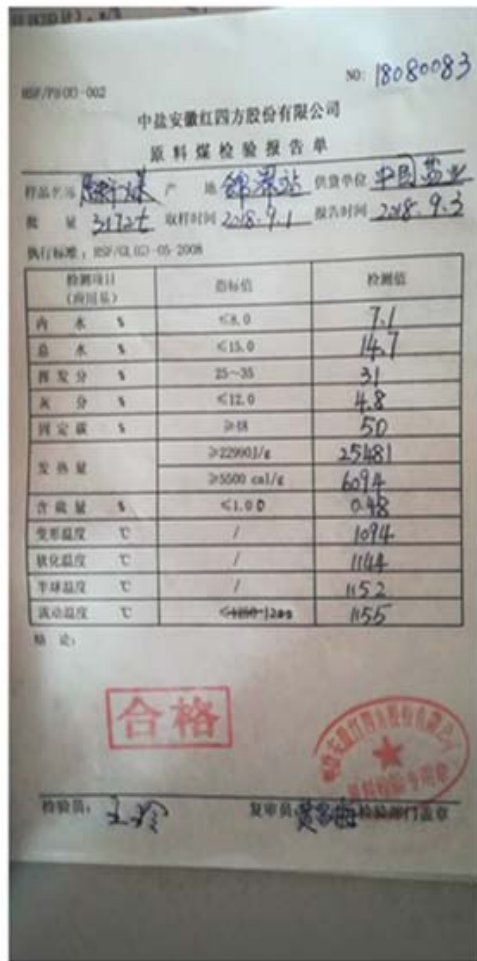 NO: 18080083
HSF/PB(G)-002
中盐安徽红四方股份有限公司
原料煤检验报告单
样品名称 产 地 供货单位 中国盐业
批 量 3172t 取样时间 2018.9.1 报告时间 2018.9.3
执行标准: HSF/GL(G)-05-2008
检测项目 (应用基) 指标值 检测值
内 水 % ≤8.0 7.1
总 水 % ≤15.0 14.7
挥发分 % 25~35 31
灰 分 % ≤12.0 4.8
固定碳 % ≥48 50
发热量 ≥22990J/g 25481
≥5500 cal/g 6094
含硫量 % ≤1.00 0.48
变形温度 ℃ / 1094
软化温度 ℃ / 1144
半球温度 ℃ / 1152
流动温度 ℃ 1155
结 论:
合格
中盐安徽红四方股份有限公司
原料检验专用章
检验员: 复审员: 检验部门盖章